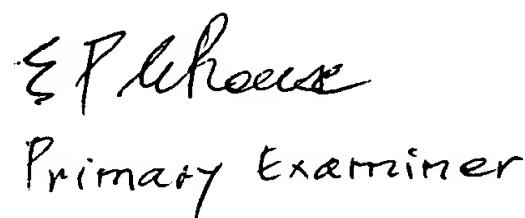 E P LeRouse
Primary Examiner